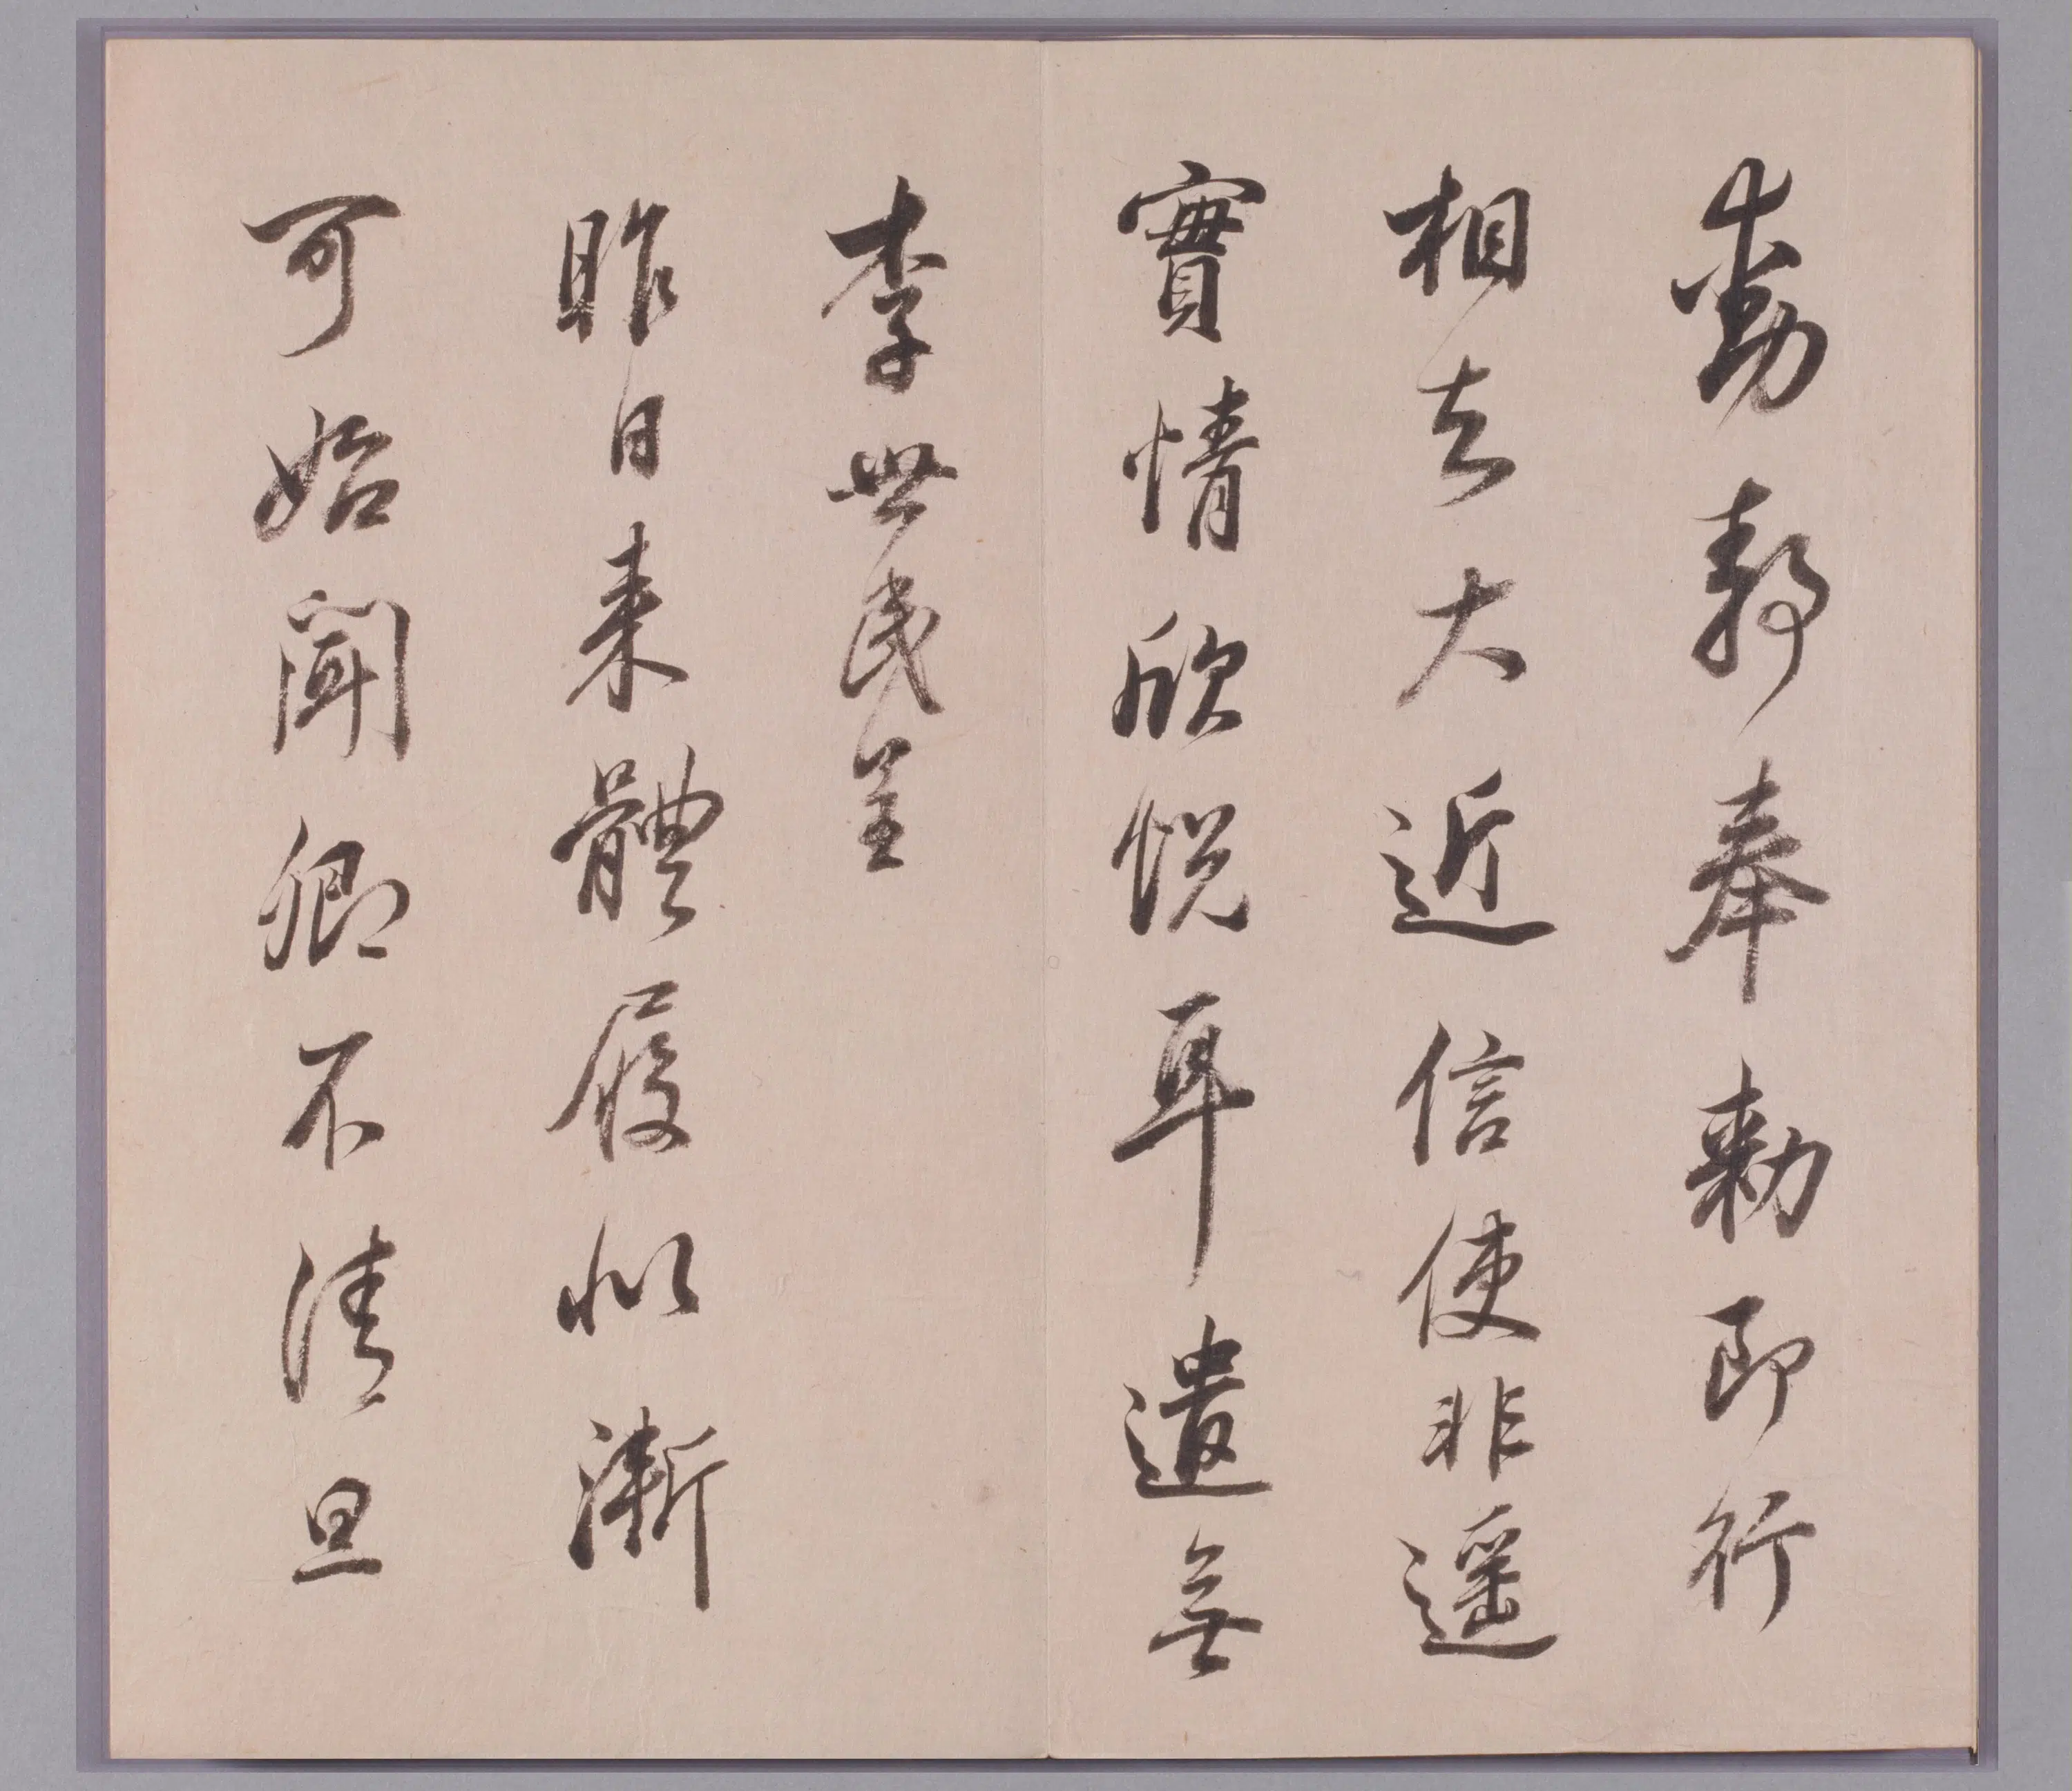 動静奉勑即行
相去大近信使非遥
實情欣悦耳遣無
李世民呈
昨日来體履似漸
可始聞卿不清旦